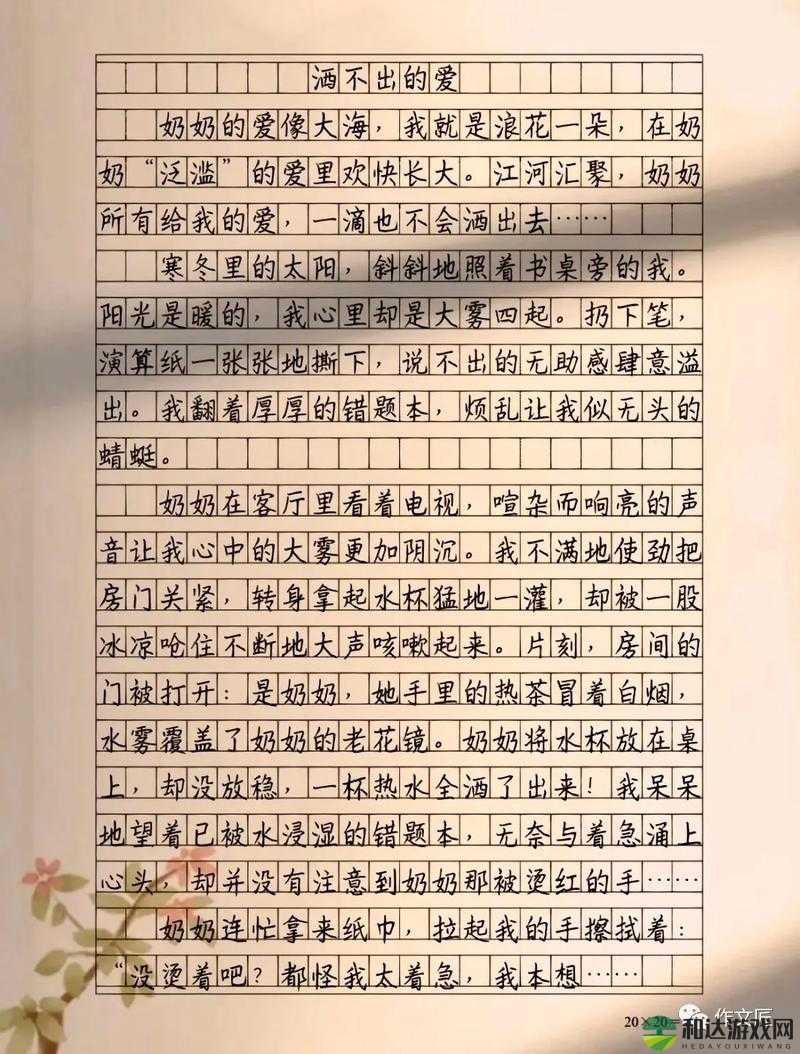 洒不出的爱
奶奶的爱像大海，我就是浪花一朵，在奶
奶“泛滥”的爱里欢快长大。江河汇聚，奶奶
所有给我的爱，一滴也不会洒出去……
寒冬里的太阳，斜斜地照着书桌旁的我。
阳光是暖的，我心里却是大雾四起。扔下笔，
演算纸一张张地撕下，说不出的无助感肆意溢
出。我翻着厚厚的错题本，烦乱让我似无头的
蜻蜓。
奶奶在客厅里看着电视，喧杂而响亮的声
音让我心中的大雾更加阴沉。我不满地使劲把
房门关紧，转身拿起水杯猛地一灌，却被一股
冰凉呛住不断地大声咳嗽起来。片刻，房间的
门被打开：是奶奶，她手里的热茶冒着白烟，
水雾覆盖了奶奶的老花镜。奶奶将水杯放在桌
上，却没放稳，一杯热水全洒了出来！我呆呆
地望着已被水浸湿的错题本，无奈与着急涌上
心头，却并没有注意到奶奶那被烫红的手……
奶奶连忙拿来纸巾，拉起我的手擦拭着：
“没烫着吧？都怪我太着急，我本想……
20×20
作文匠
和达游戏网
HEDAYOUXIWANG